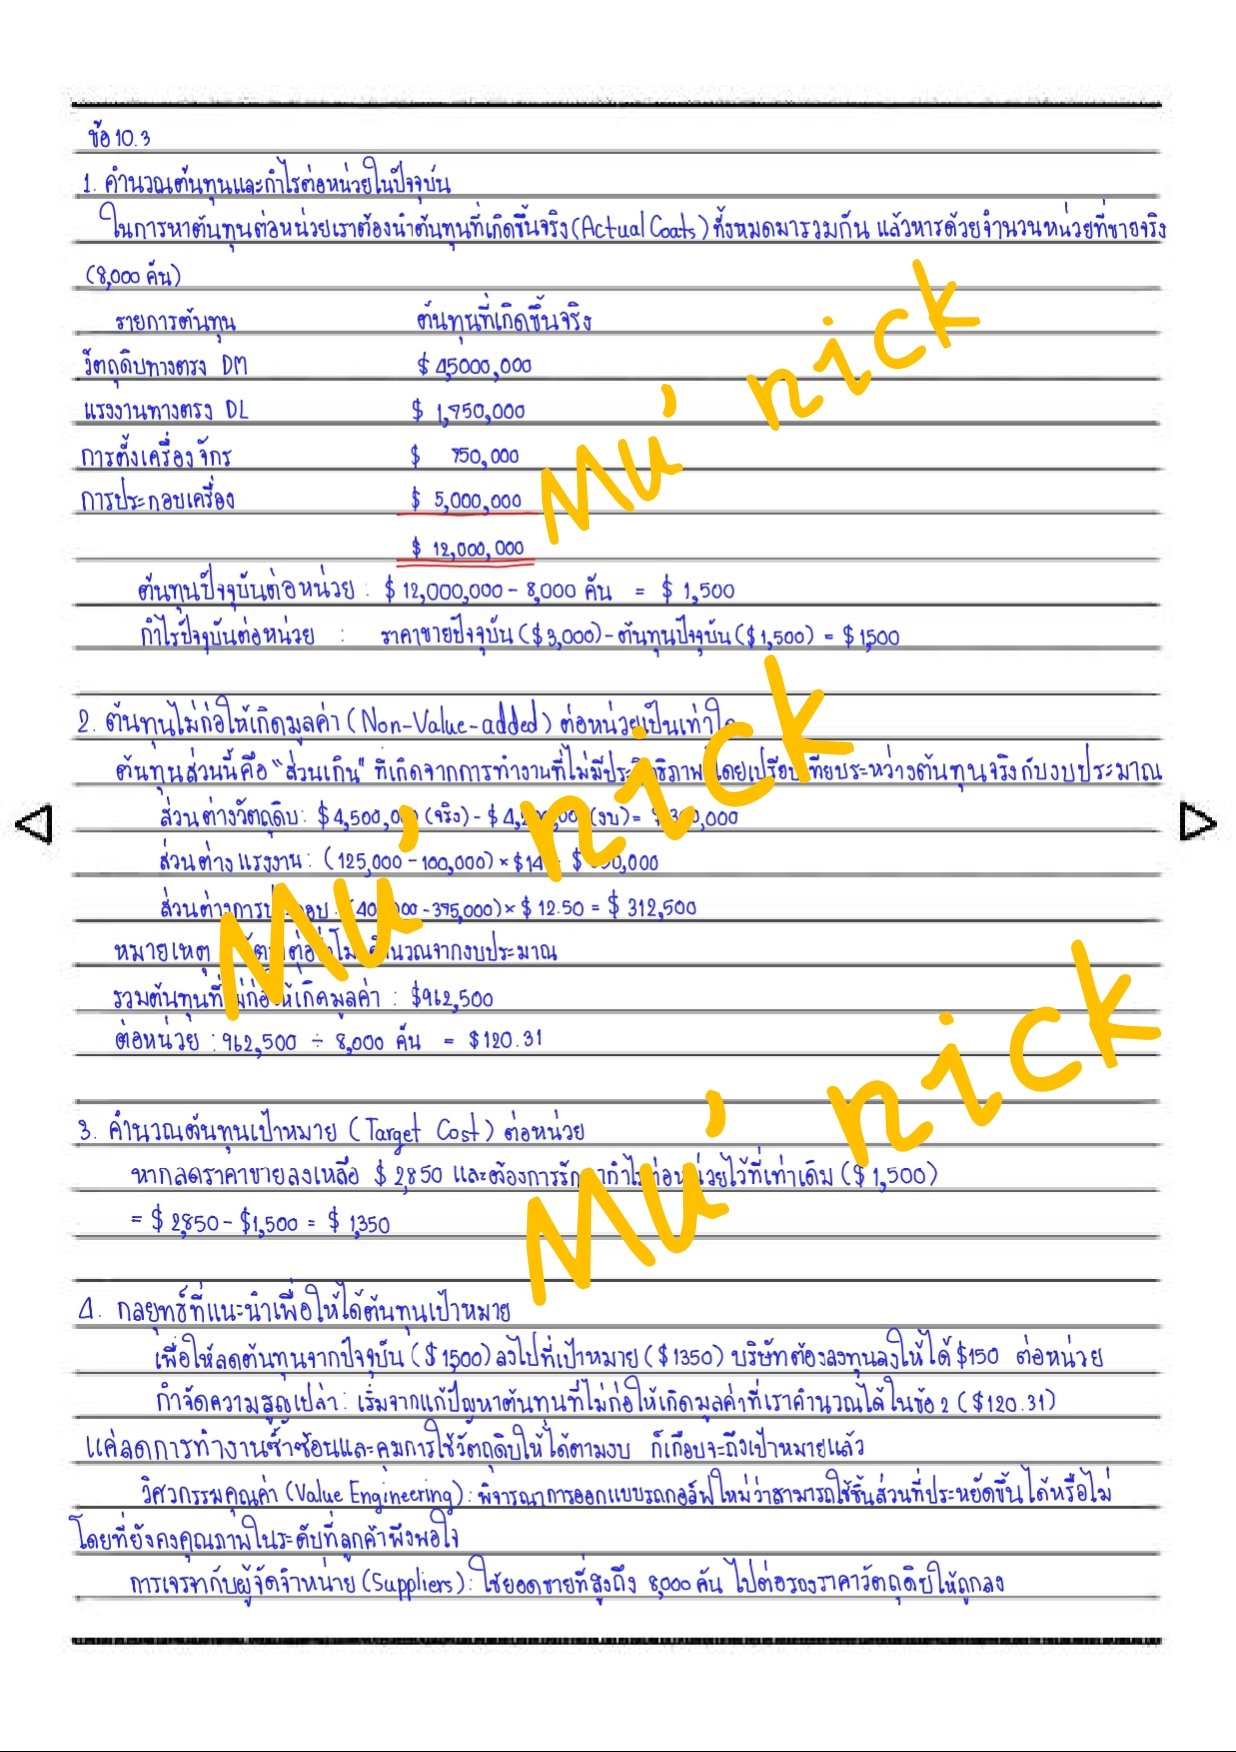 ข้อ 10.3
1. คำนวณต้นทุนและกำไรต่อหน่วยในปัจจุบัน
ในการหาต้นทุนต่อหน่วยเราต้องนำต้นทุนที่เกิดขึ้นจริง (Actual Coats) ทั้งหมดมารวมกัน แล้วหารด้วยจำนวนหน่วยที่ขายจริง
(8,000 คัน)
รายการต้นทุน ต้นทุนที่เกิดขึ้นจริง
วัตถุดิบทางตรง DM $ 4,5000,000
แรงงานทางตรง DL $ 1,750,000
การตั้งเครื่องจักร $ 750,000
การประกอบเครื่อง $ 5,000,000
$ 12,000,000
ต้นทุนปัจจุบันต่อหน่วย : $ 12,000,000 - 8,000 คัน = $ 1,500
กำไรปัจจุบันต่อหน่วย : ราคาขายปัจจุบัน ($ 3,000) - ต้นทุนปัจจุบัน ($ 1,500) = $ 1,500
2. ต้นทุนไม่ก่อให้เกิดมูลค่า (Non-Value-added) ต่อหน่วยเป็นเท่าใด
ต้นทุนส่วนนี้คือ "ส่วนเกิน" ที่เกิดจากการทำงานที่ไม่มีประสิทธิภาพ โดยเปรียบเทียบระหว่างต้นทุนจริงกับงบประมาณ
ส่วนต่างวัตถุดิบ : $ 4,500,000 (จริง) - $ 4, (งบ) = ,000
ส่วนต่างแรงงาน : (125,000 - 100,000) × $ 14 = $ ,000
ส่วนต่างการประกอบ : - 375,000) × $ 12.50 = $ 312,500
หมายเหตุ คำนวณจากงบประมาณ
รวมต้นทุนที่ไม่ก่อให้เกิดมูลค่า : $962,500
ต่อหน่วย : 962,500 ÷ 8,000 คัน = $ 120.31
3. คำนวณต้นทุนเป้าหมาย (Target Cost) ต่อหน่วย
หากลดราคาขายลงเหลือ $ 2,850 และต้องการรักษากำไรต่อหน่วยไว้ที่เท่าเดิม ($ 1,500)
= $ 2,850 - $1,500 = $ 1,350
4. กลยุทธ์ที่แนะนำเพื่อให้ได้ต้นทุนเป้าหมาย
เพื่อให้ลดต้นทุนจากปัจจุบัน ($ 1,500) ลงไปที่เป้าหมาย ($ 1350) บริษัทต้องลงทุนลงให้ได้ $150 ต่อหน่วย
กำจัดความสูญเปล่า : เริ่มจากแก้ปัญหาต้นทุนที่ไม่ก่อให้เกิดมูลค่าที่เราคำนวณได้ในข้อ 2 ($120.31)
แค่ลดการทำงานซ้ำซ้อนและคุมการใช้วัตถุดิบให้ได้ตามงบ ก็เกือบจะถึงเป้าหมายแล้ว
วิศวกรรมคุณค่า (Value Engineering) : พิจารณาการออกแบบรถกอล์ฟใหม่ว่าสามารถใช้ชิ้นส่วนที่ประหยัดขึ้นได้หรือไม่
โดยที่ยังคงคุณภาพในระดับที่ลูกค้าพึงพอใจ
การเจรจากับผู้จัดจำหน่าย (Suppliers) : ใช้ยอดขายที่สูงถึง 8,000 คัน ไปต่อรองราคาวัตถุดิบให้ถูกลง
Mu' nick
Mu' nick
Mu' nick